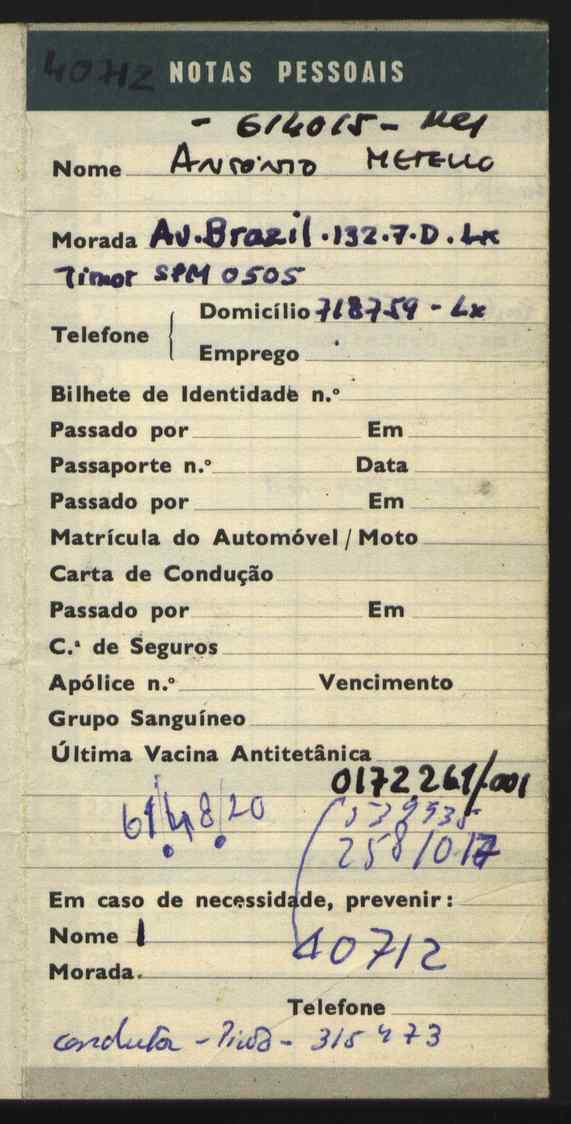 40712 NOTAS PESSOAIS
- 614015 -
Nome António Metello
Morada Av. Brazil . 132.7.D . Lx
Timor SPM 0505
Telefone
Domicílio 718759 - Lx
Emprego
Bilhete de Identidade n.º
Passado por Em
Passaporte n.º Data
Passado por Em
Matrícula do Automóvel / Moto
Carta de Condução
Passado por Em
C.ª de Seguros
Apólice n.º Vencimento
Grupo Sanguíneo
Última Vacina Antitetânica
0172261/.001
Em caso de necessidade, prevenir :
Nome
40712
Morada
Telefone
315473